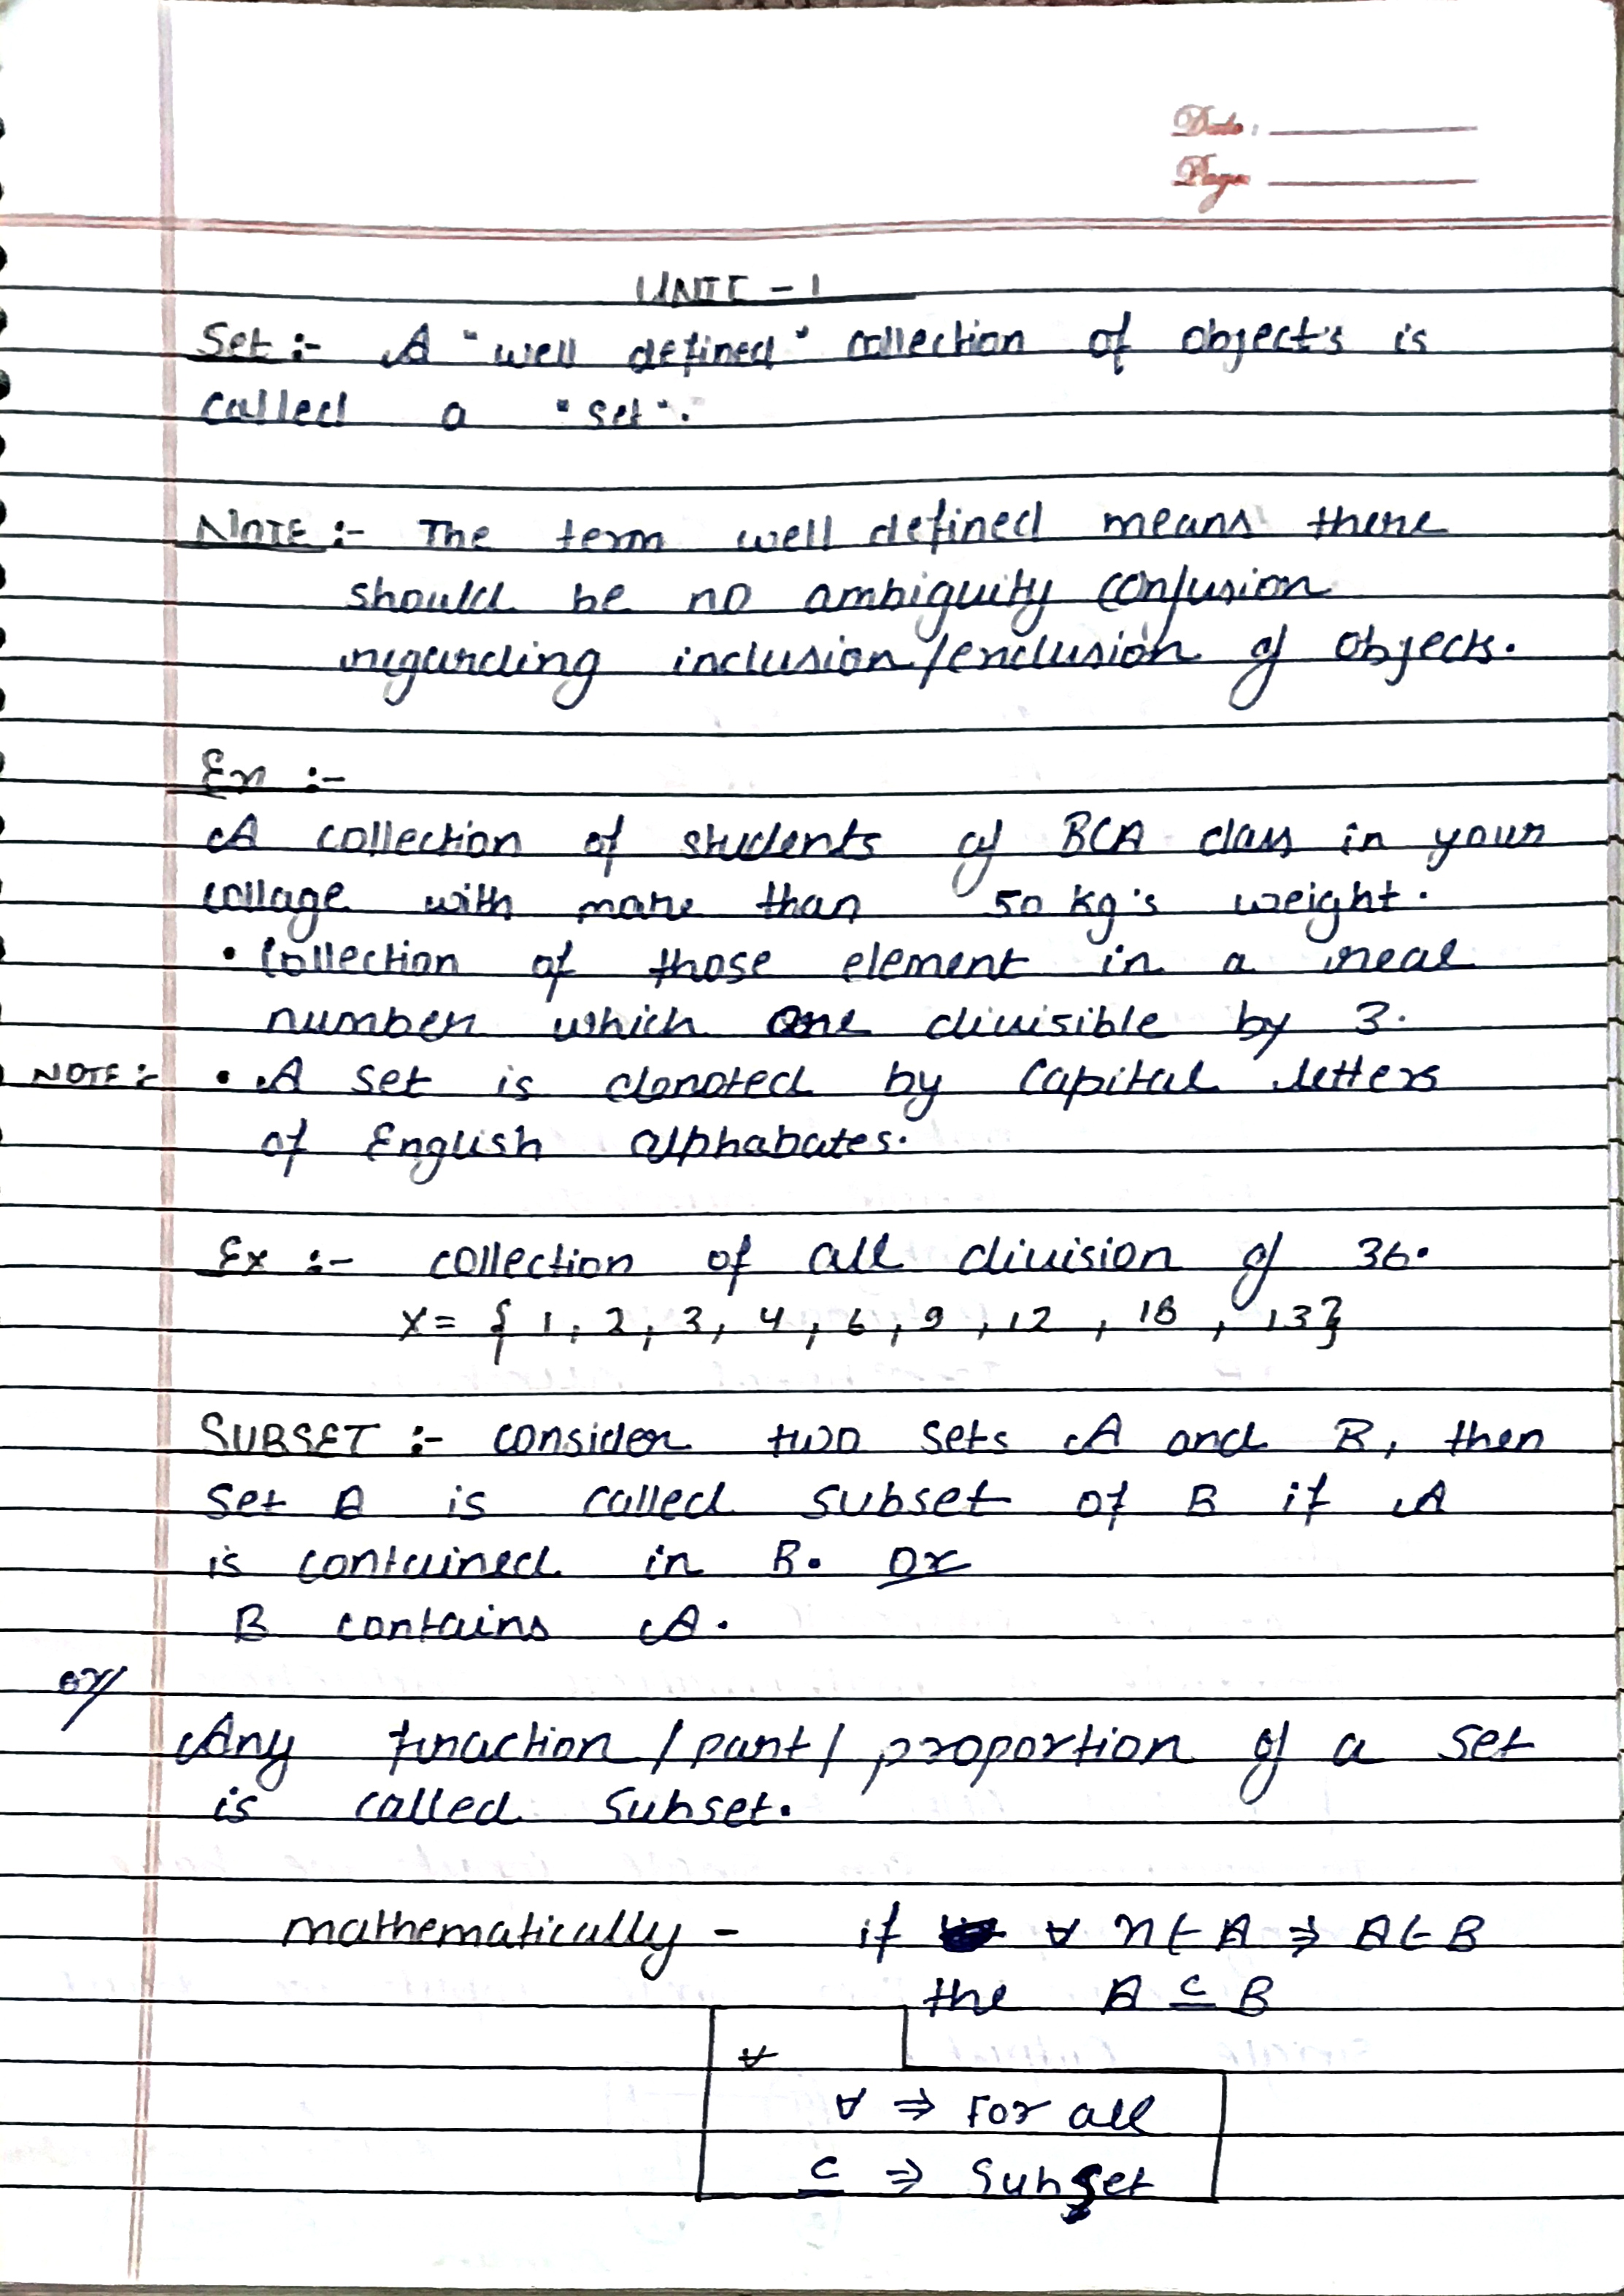 Date:
Page
UNIT - 1
Set :- A "well defined" collection of object's is
called a "set".
NOTE :- The term well defined means there
should be no ambiguity confusion
regarding inclusion/exclusion of objects.
Ex :-
A collection of students of BCA class in your
collage with more than 50 kg's weight.
• Collection of those element in a real
number which are divisible by 3.
NOTE :- • A set is donoted by Capital letters
of English alphabates.
Ex :- collection of all division of 36.
X = { 1, 2, 3, 4, 6, 9, 12, 18, 13}
SUBSET :- consider two sets A and B, then
set A is called subset of B if A
is contained in B. Or
B contains A.
or/
Any fraction / part / proportion of a set
is called subset.
mathematically - if ∀ x ∈ A ⇒ A ∈ B
the A ⊆ B
∀
∀ ⇒ For all
⊆ ⇒ Subset